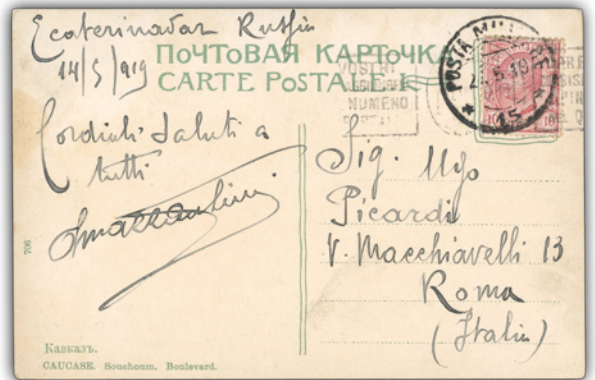 Ecaterinadar Russia
14/5/919
ПОЧТОВАЯ КАРТОЧКА
CARTE POSTALE
POSTA MILITARE
15
VOSTRI
NUMERO
10
Cordiali Saluti a
tutti
Sig. Ugo
Picardi
V. Macchiavelli 13
Roma
(Italia)
706
Кавказъ.
CAUCASE. Souchoum. Boulevard.